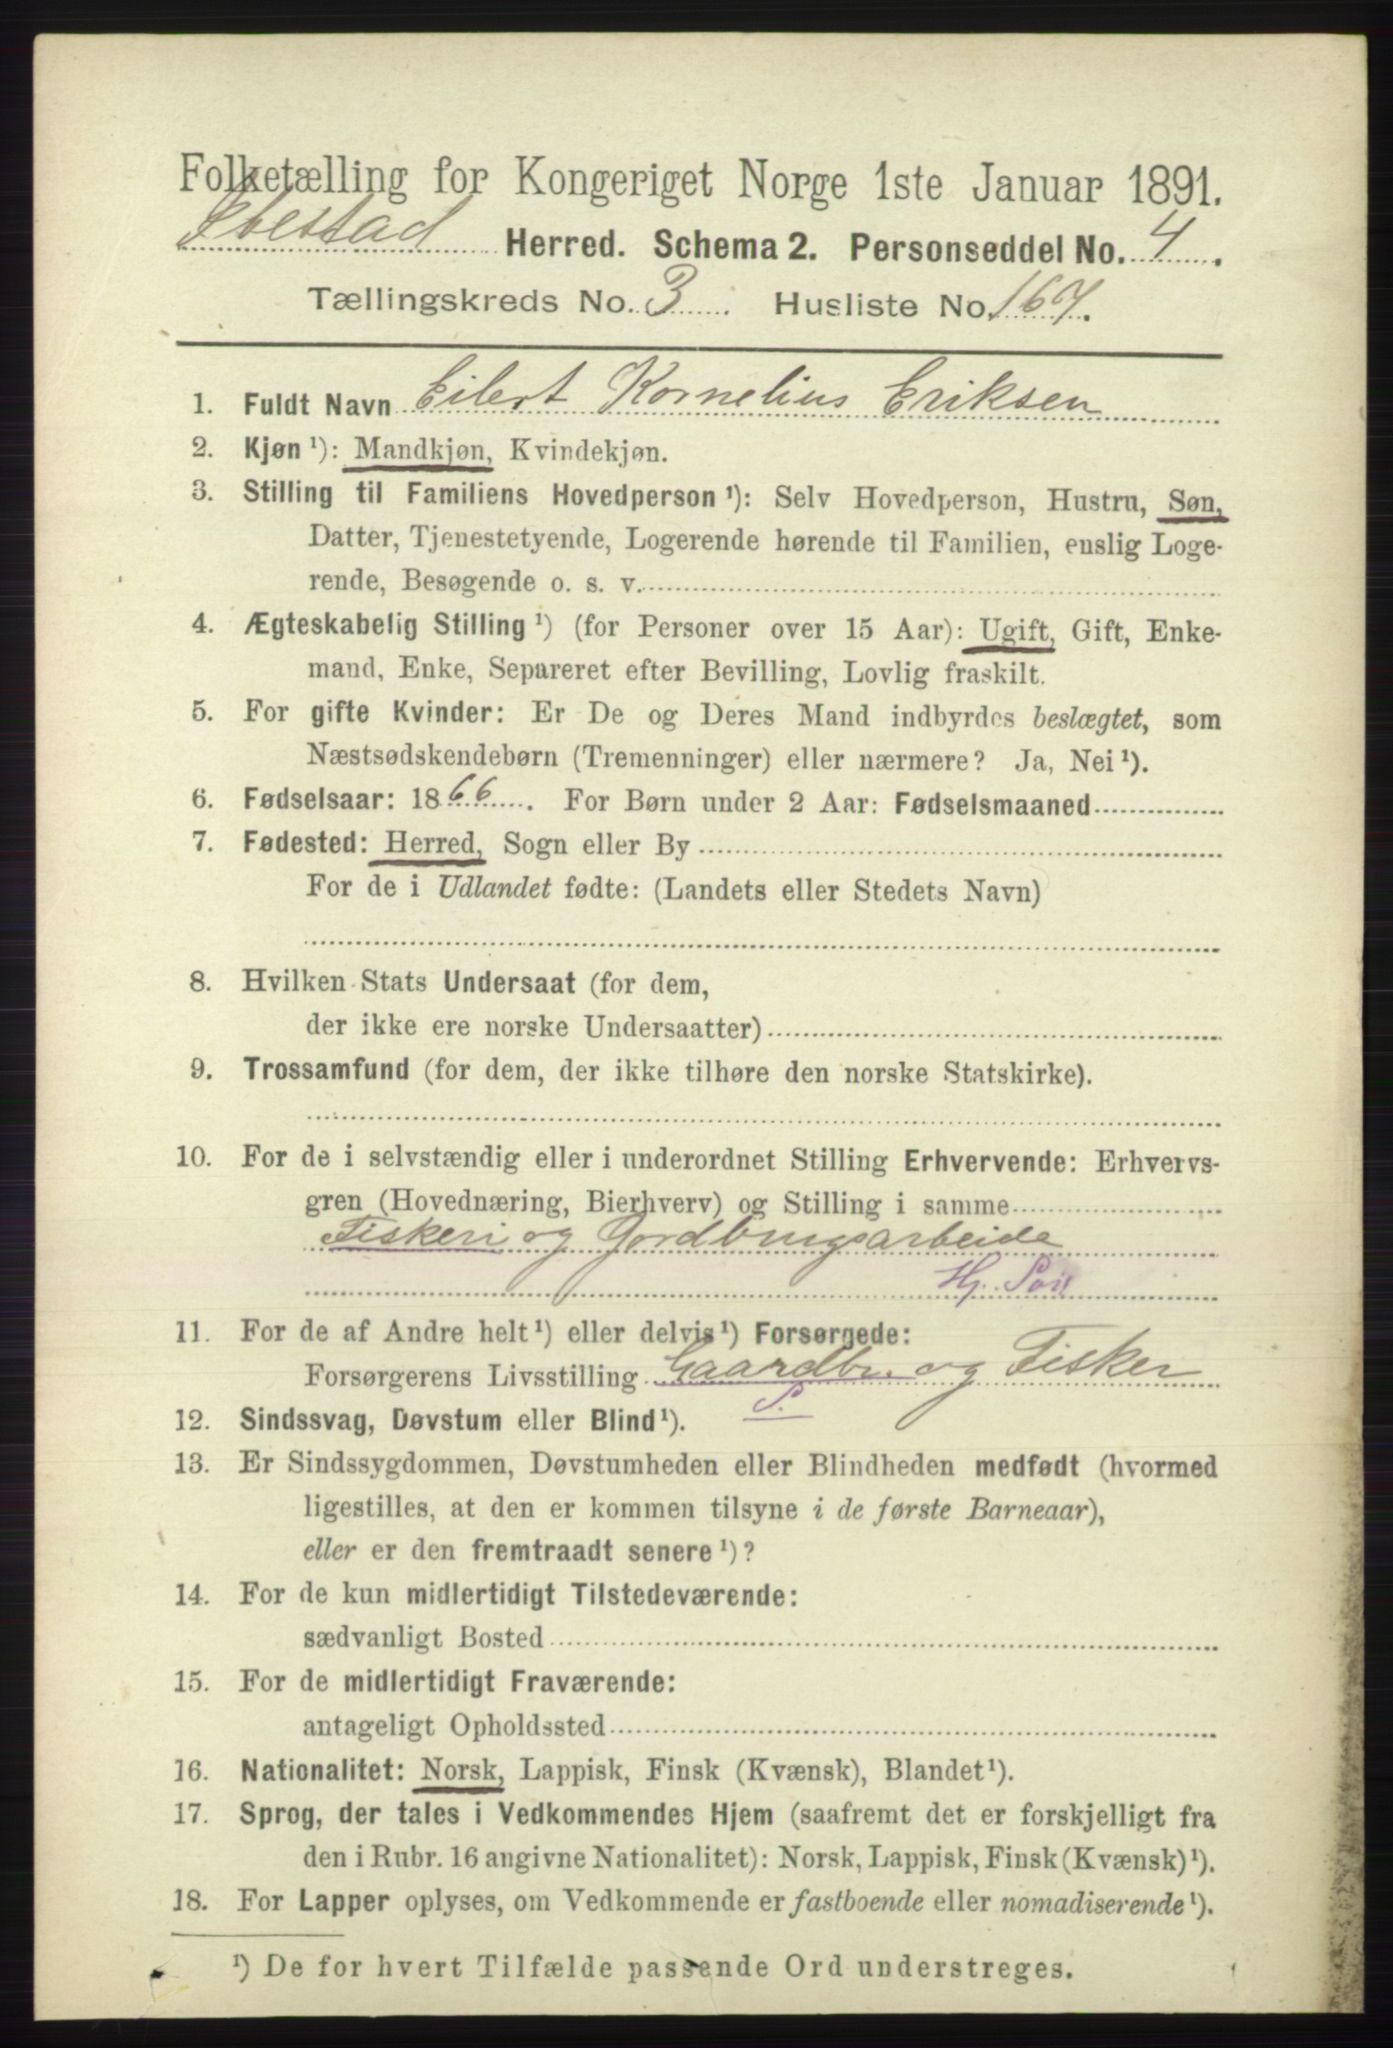 Folketælling for Kongeriget Norge 1ste Januar 1891.
Ibestad Herred. Schema 2. Personseddel No. 4.
Tællingskreds No. 3. Husliste No. 167.
1. Fuldt Navn Eilert Kornelius Eriksen
2. Kjøn ¹): Mandkjøn, Kvindekjøn.
3. Stilling til Familiens Hovedperson ¹): Selv Hovedperson, Hustru, Søn,
Datter, Tjenestetyende, Logerende hørende til Familien, enslig Loge-
rende, Besøgende o. s. v.
4. Ægteskabelig Stilling ¹) (for Personer over 15 Aar): Ugift, Gift, Enke-
mand, Enke, Separeret efter Bevilling, Lovlig fraskilt.
5. For gifte Kvinder: Er De og Deres Mand indbyrdes beslægtet, som
Næstsødskendebørn (Tremenninger) eller nærmere? Ja, Nei ¹).
6. Fødselsaar: 1866. For Børn under 2 Aar: Fødselsmaaned
7. Fødested: Herred, Sogn eller By
For de i Udlandet fødte: (Landets eller Stedets Navn)
8. Hvilken Stats Undersaat (for dem,
der ikke ere norske Undersaatter)
9. Trossamfund (for dem, der ikke tilhøre den norske Statskirke).
10. For de i selvstændig eller i underordnet Stilling Erhvervende: Erhvervs-
gren (Hovednæring, Bierhverv) og Stilling i samme
Fiskeri og Jordbrugsarbeide
Hj. Søn
11. For de af Andre helt ¹) eller delvis ¹) Forsørgede:
Forsørgerens Livsstilling Gaardbr. og Fisker
S.
12. Sindssvag, Døvstum eller Blind ¹).
13. Er Sindssygdommen, Døvstumheden eller Blindheden medfødt (hvormed
ligestilles, at den er kommen tilsyne i de første Barneaar),
eller er den fremtraadt senere ¹)?
14. For de kun midlertidigt Tilstedeværende:
sædvanligt Bosted
15. For de midlertidigt Fraværende:
antageligt Opholdssted
16. Nationalitet: Norsk, Lappisk, Finsk (Kvænsk), Blandet ¹).
17. Sprog, der tales i Vedkommendes Hjem (saafremt det er forskjelligt fra
den i Rubr. 16 angivne Nationalitet): Norsk, Lappisk, Finsk (Kvænsk) ¹).
18. For Lapper oplyses, om Vedkommende er fastboende eller nomadiserende ¹).
¹) De for hvert Tilfælde passende Ord understreges.